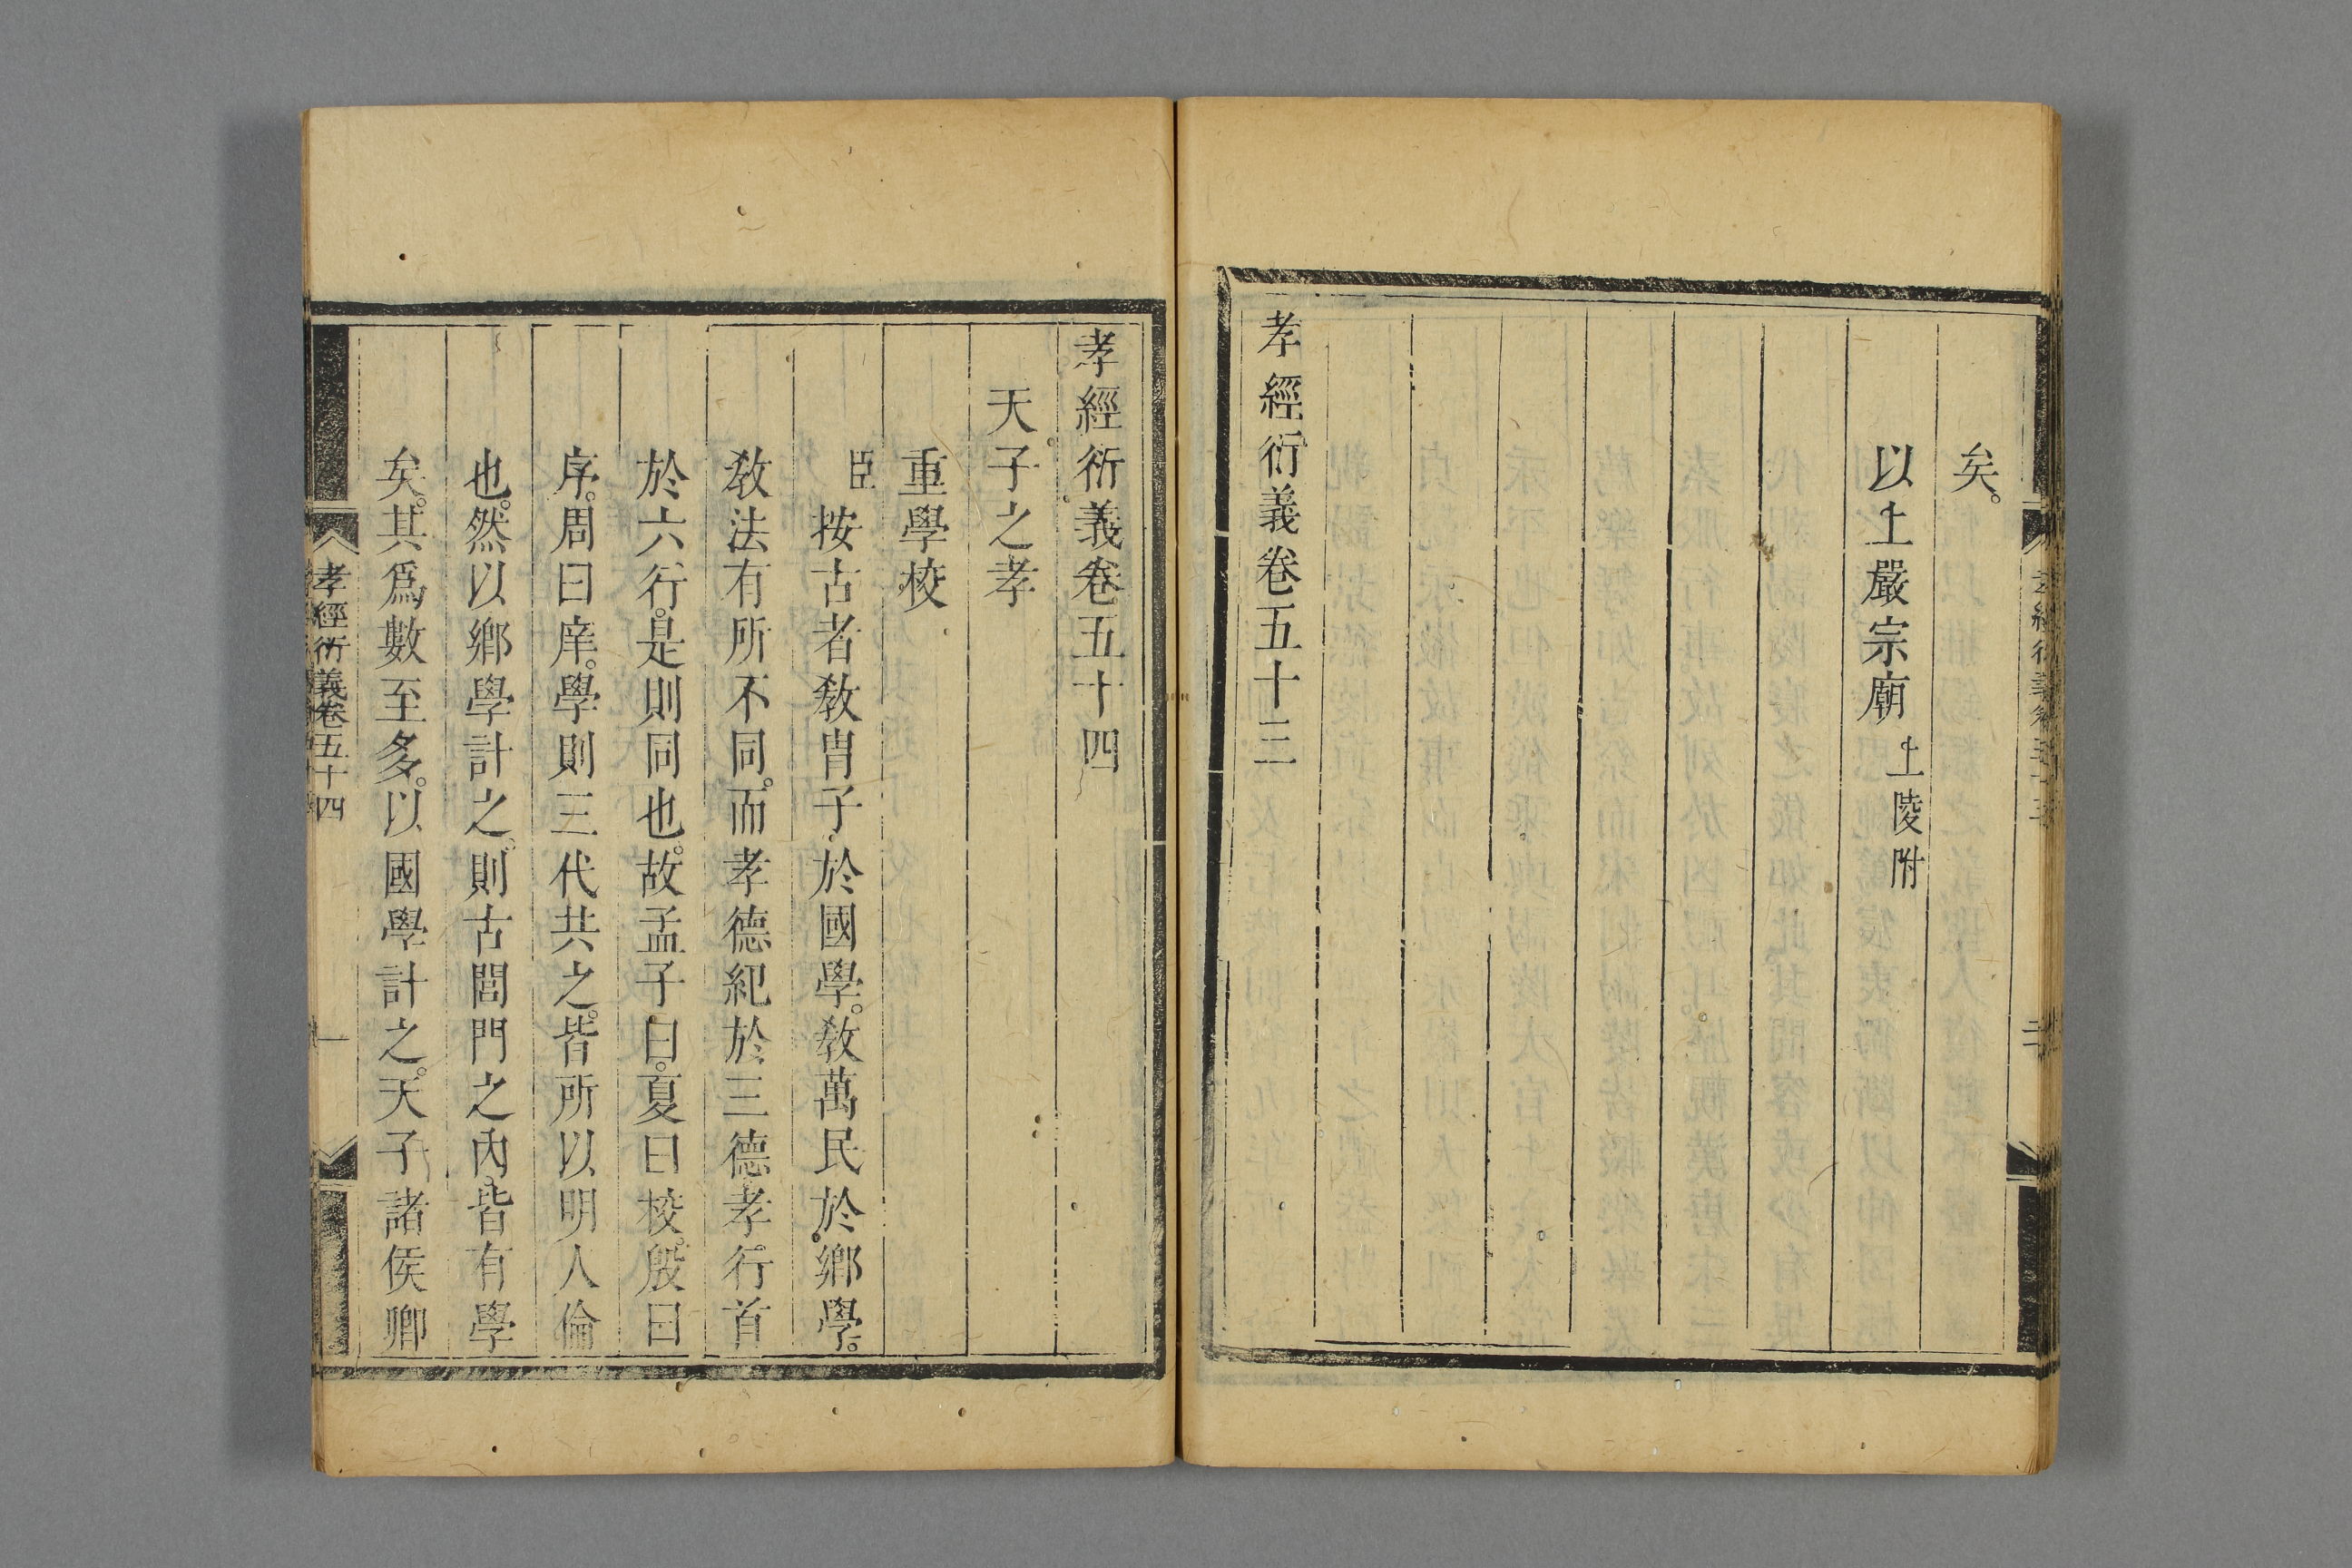 矣。
以上嚴宗廟 上陵附
孝經衍義卷五十三
孝經衍義卷五十四
天子之孝
重學校
臣按古者敎胄子於國學。敎萬民於鄉學。
敎法有所不同。而孝德紀於三德孝行首
於六行。是則同也。故孟子曰。夏曰校。殷曰
序。周曰庠。學則三代共之。皆所以明人倫
也。然以鄉學計之。則古閭門之內。皆有學
矣。其爲數至多。以國學計之。天子諸侯卿
孝經衍義卷五十四
一